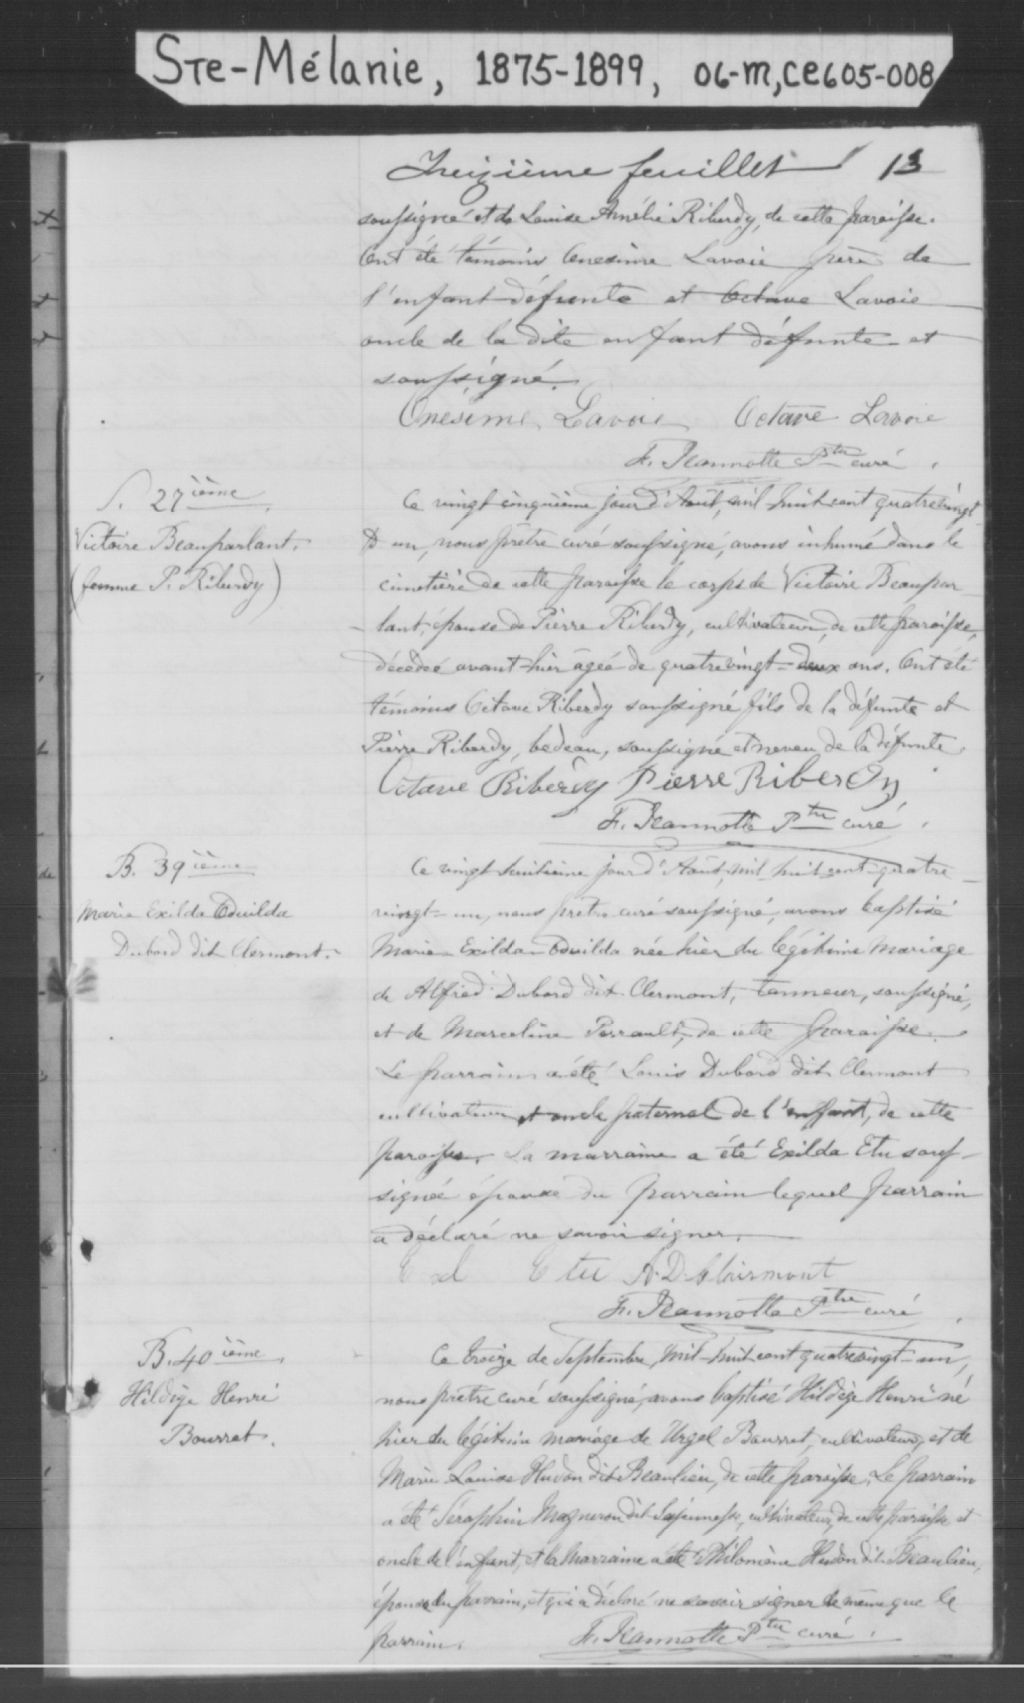 Ste-Mélanie, 1875-1899, 06-M,CE605-008
Treizième feuillet 13
soussigné et de Louise Amélie Riberdy, de cette paroisse.
Ont été témoins Onésime Lavoie père de
l'enfant défunte et Octave Lavoie
oncle de la dite enfant défunte et
soussigné.
Onésime Lavoie Octave Lavoie
F. Jeannotte Ptre curé.
S. 27ième
Victoire Beauparlant.
(femme P. Riberdy)
Ce vingt cinquième jour d'Août, mil huit cent quatrevingt
un, nous prêtre curé soussigné, avons inhumé dans le
cimetière de cette paroisse le corps de Victoire Beaupar
lant, épouse de Pierre Riberdy, cultivateur, de cette paroisse,
décédée avant-hier âgée de quatrevingt-deux ans. Ont été
témoins Octave Riberdy soussigné fils de la défunte et
Pierre Riberdy, bedeau, soussigné et neveu de la défunte.
Octave Riberdy Pierre Riberdy
F. Jeannotte Ptre curé.
B. 39ième
Marie Exilda Oduilda
Dubord dit Clermont.
Ce vingt huitième jour d'Août, mil huit cent quatre
vingt-un, nous prêtre curé soussigné, avons baptisé
Marie Exilda Oduilda née hier du légitime mariage
de Alfred Dubord dit Clermont, tanneur, soussigné,
et de Marceline Perrault, de cette paroisse.
Le parrain a été Louis Dubord dit Clermont
cultivateur et oncle paternel de l'enfant, de cette
paroisse. La marraine a été Exilda Etu sous-
signée épouse du parrain lequel parrain
a déclaré ne savoir signer.
Exl Etu A. D. Clairmont
F. Jeannotte Ptre curé
B. 40ième.
Hildège Henri
Bourret.
Ce treize de Septembre, mil-huit cent quatrevingt-un,
nous prêtre curé soussigné, avons baptisé Hildège Henri né
hier du légitime mariage de Urgel Bourret, cultivateur, et de
Marie Louise Hudon dit Beaulieu, de cette paroisse. Le parrain
a été Séraphin Magneron dit Lajeunesse, cultivateur, de cette paroisse et
oncle de l'enfant, et la Marraine a été Philomène Hudon dit Beaulieu,
épouse du parrain, et qui a déclaré ne savoir signer de même que le
parrain. F. Jeannotte Ptre curé.